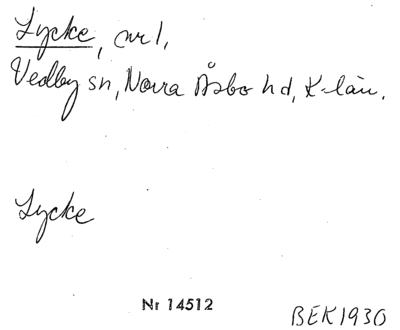 Lycke, nr 1,
Vedby sn, Norra Åsbo hd, K-län.
Lycke
Nr 14512
BEK1930